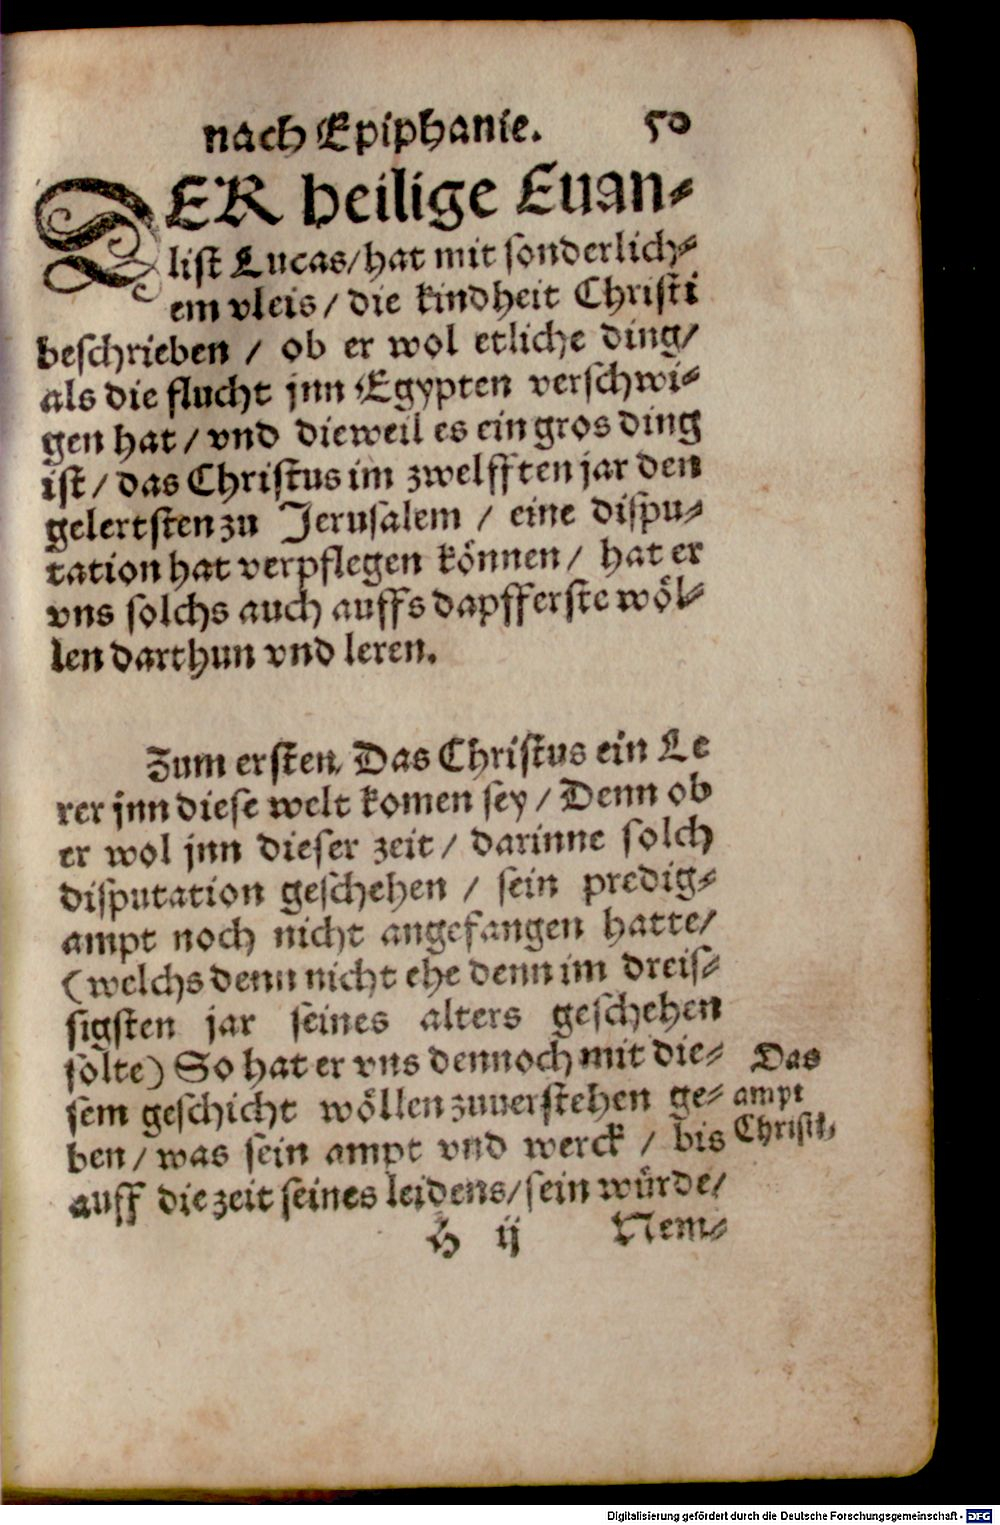 nach Epiphanie. 50
DER heilige Euan-
list Lucas/hat mit sonderlich-
em vleis / die kindheit Christi
beschrieben / ob er wol etliche ding/
als die flucht jnn Egypten verschwi-
gen hat / vnd dieweil es ein gros ding
ist / das Christus im zwelfften jar den
gelertsten zu Jerusalem / eine dispu-
tation hat verpflegen können / hat er
vns solchs auch auffs dapfferste wöl-
len darthun vnd leren.
Zum ersten/ Das Christus ein Le
rer jnn diese welt komen sey / Denn ob
er wol jnn dieser zeit / darinne solch
disputation geschehen / sein predig-
ampt noch nicht angefangen hatte/
(welchs denn nicht ehe denn im dreis-
sigsten jar seines alters geschehen
solte) So hat er vns dennoch mit die-
sem geschicht wöllen zuuerstehen ge-
ben / was sein ampt vnd werck / bis
auff die zeit seines leidens/sein würde/
Das
ampt
Christi.
H ij Nem-
Digitalisierung gefördert durch die Deutsche Forschungsgemeinschaft - DFG